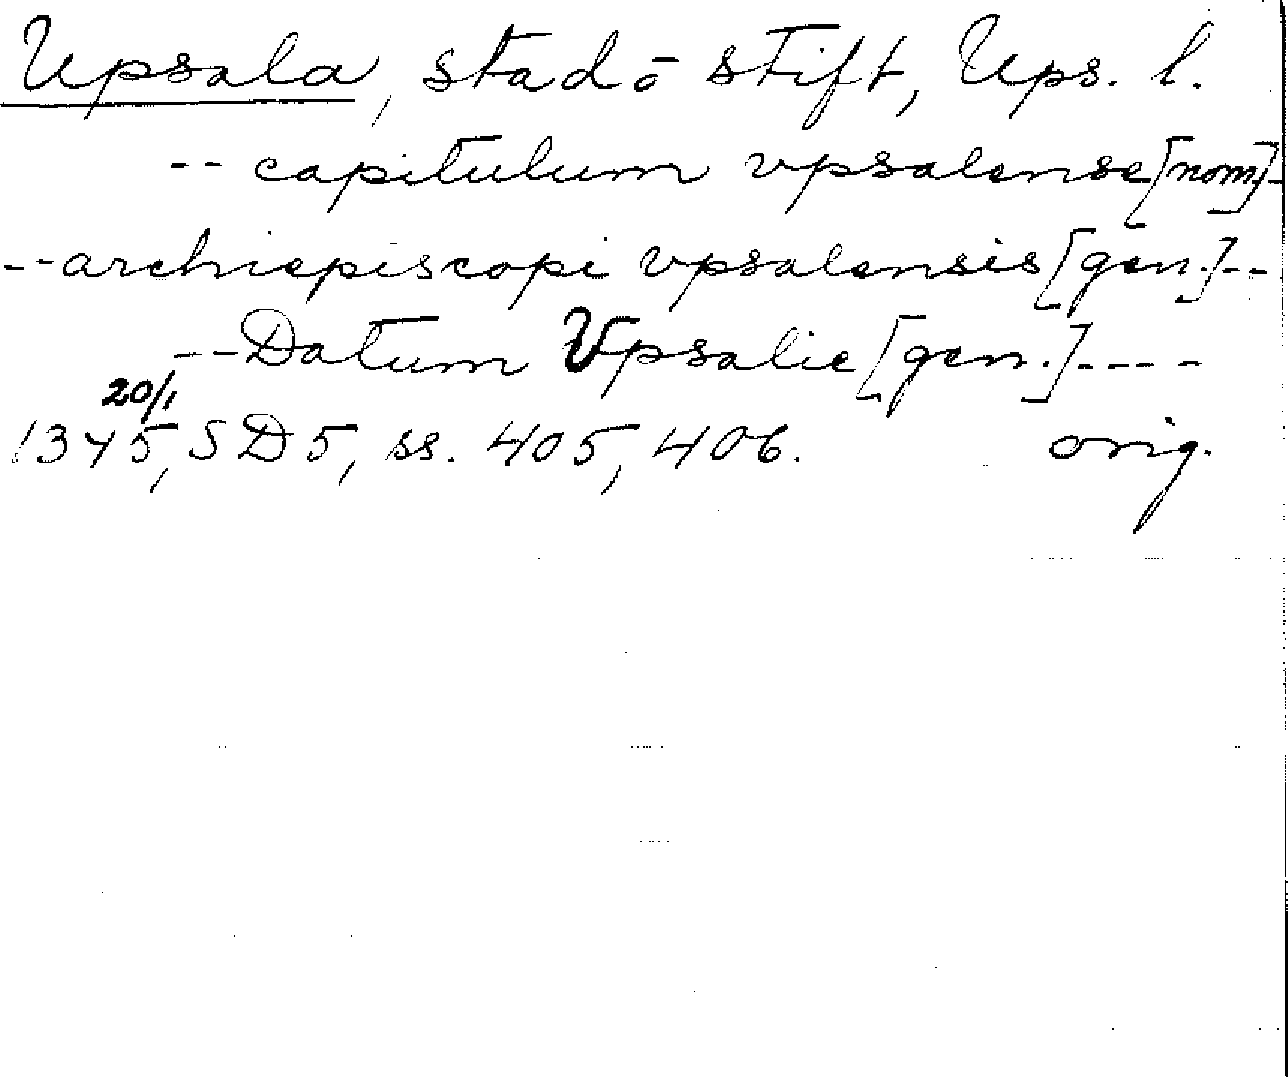 Upsala, stad o stift, Ups. l.
-- capitulum vpsalense [nom.]-
-- archiepiscopi vpsalensis [gen.] --
-- Datum Vpsalie [gen.] ----
20/1
1345, SD 5, ss. 405, 406. orig.